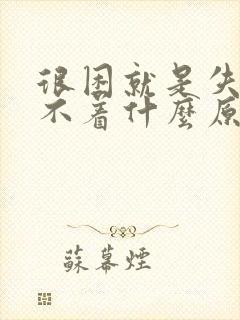 很困就是失
不着什麼原
蘇幕煙